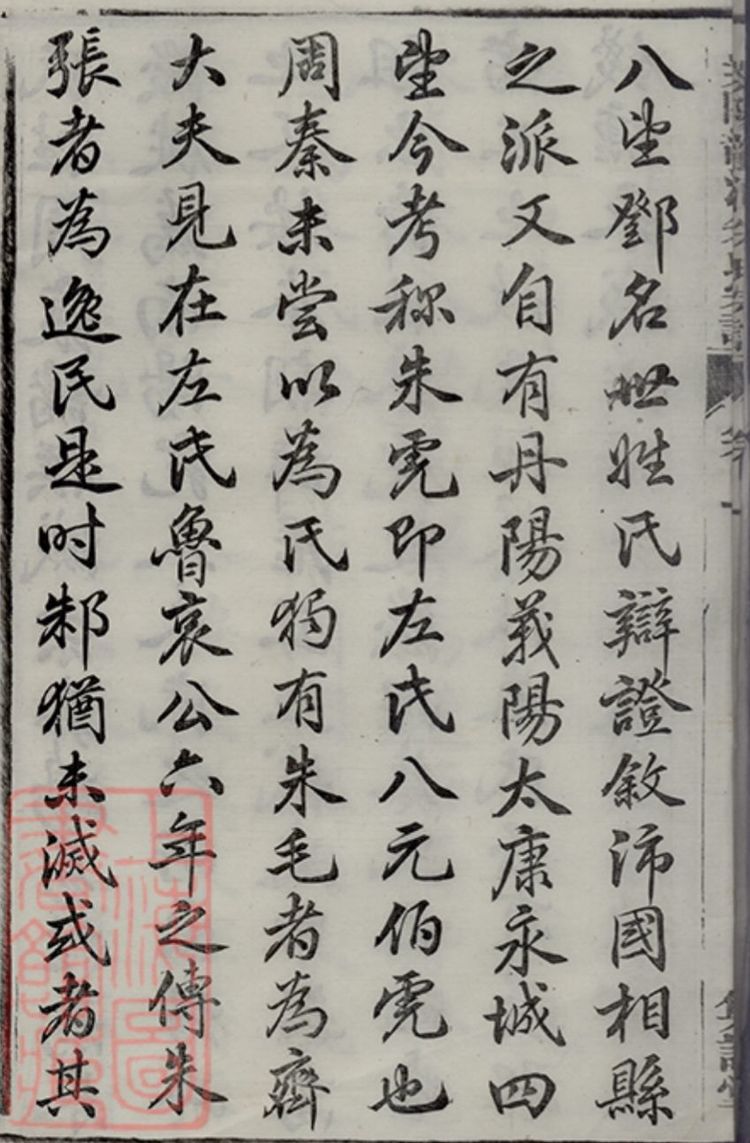 八望鄧名世姓氏辯證敘沛國相縣
之派又自有丹陽義陽太康永城四
望今考称朱虎即左氏八元伯虎也
周秦未尝以為氏獨有朱毛者為齊
大夫見在左氏魯哀公六年之傳朱
張者為逸民是时邾猶未滅或者其